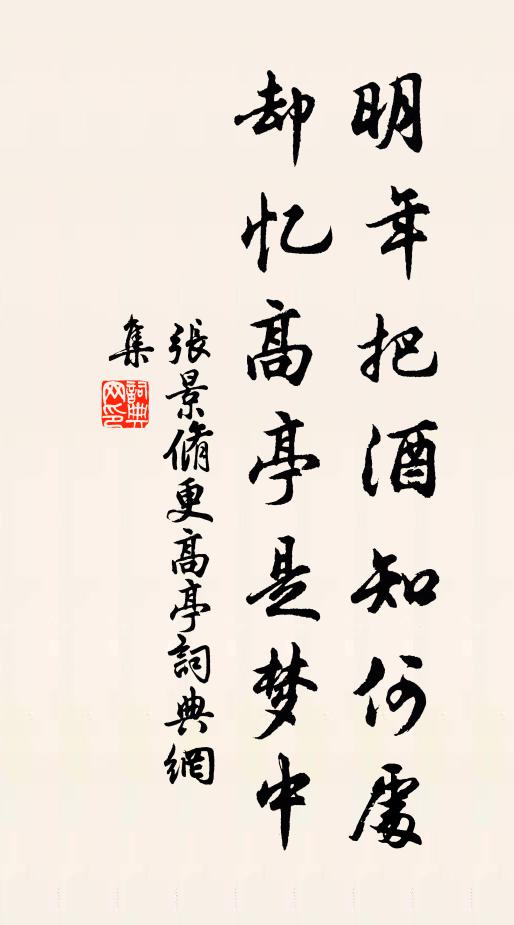 明年把酒知何處
却忆高亭是梦中
張景脩更高亭詞典網
集
詞典網印